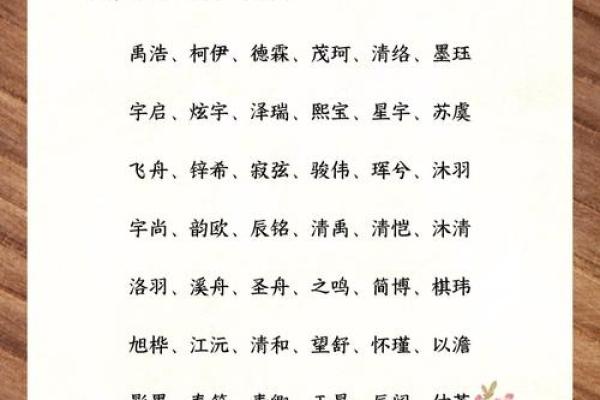 禹浩、柯伊、德霖、茂珂、清络、墨珏
宇启、炫宇、泽瑞、熙宝、星宇、苏虞
飞舟、锌希、寂弦、骏伟、珲兮、沐羽
宇尚、韵欧、辰铭、清禹、清恺、沐清
洛羽、溪舟、圣舟、之鸣、简博、棋玮
旭桦、江沅、清和、望舒、怀瑾、以澹